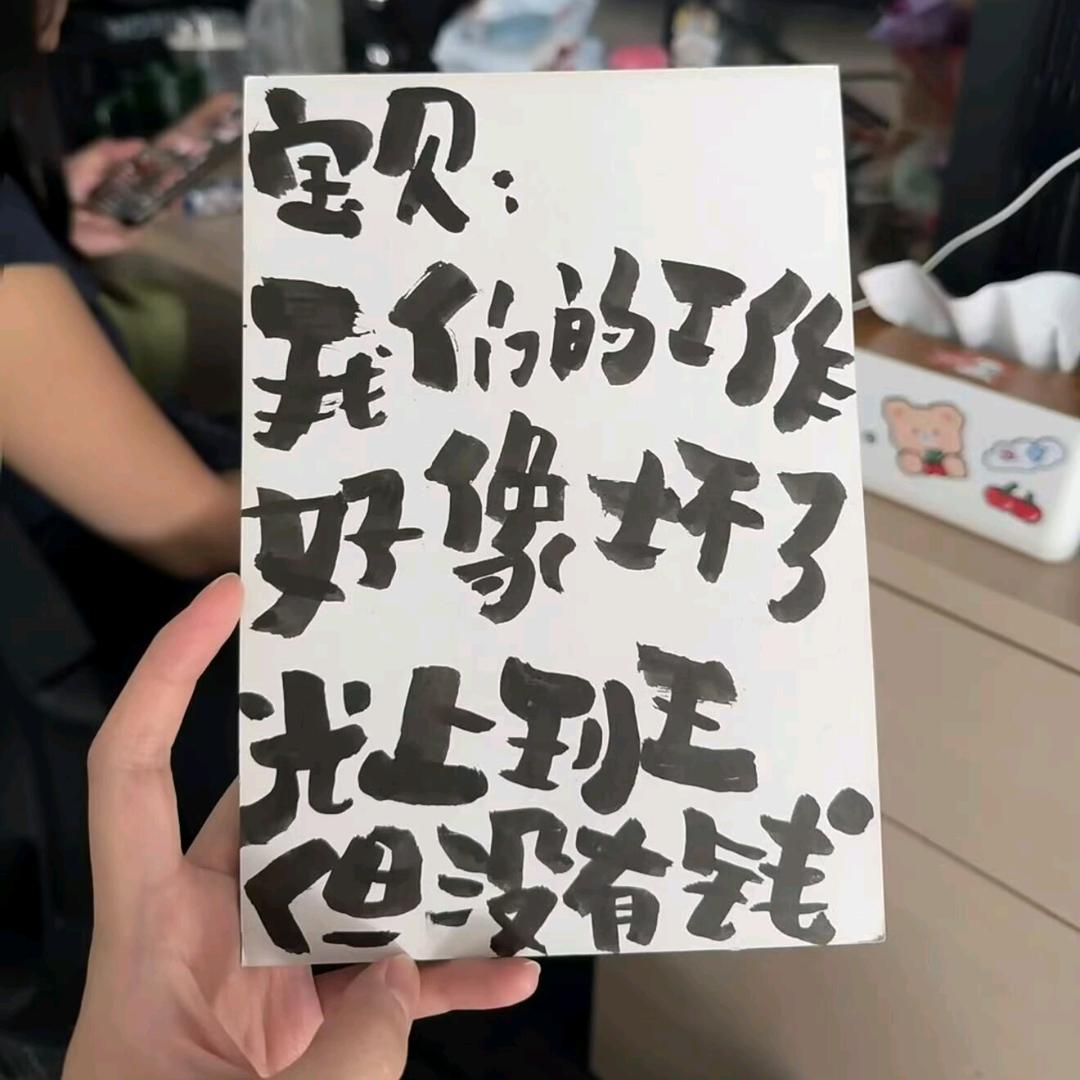 宝贝：
我们的工作
好像坏了
光上班
但没有钱